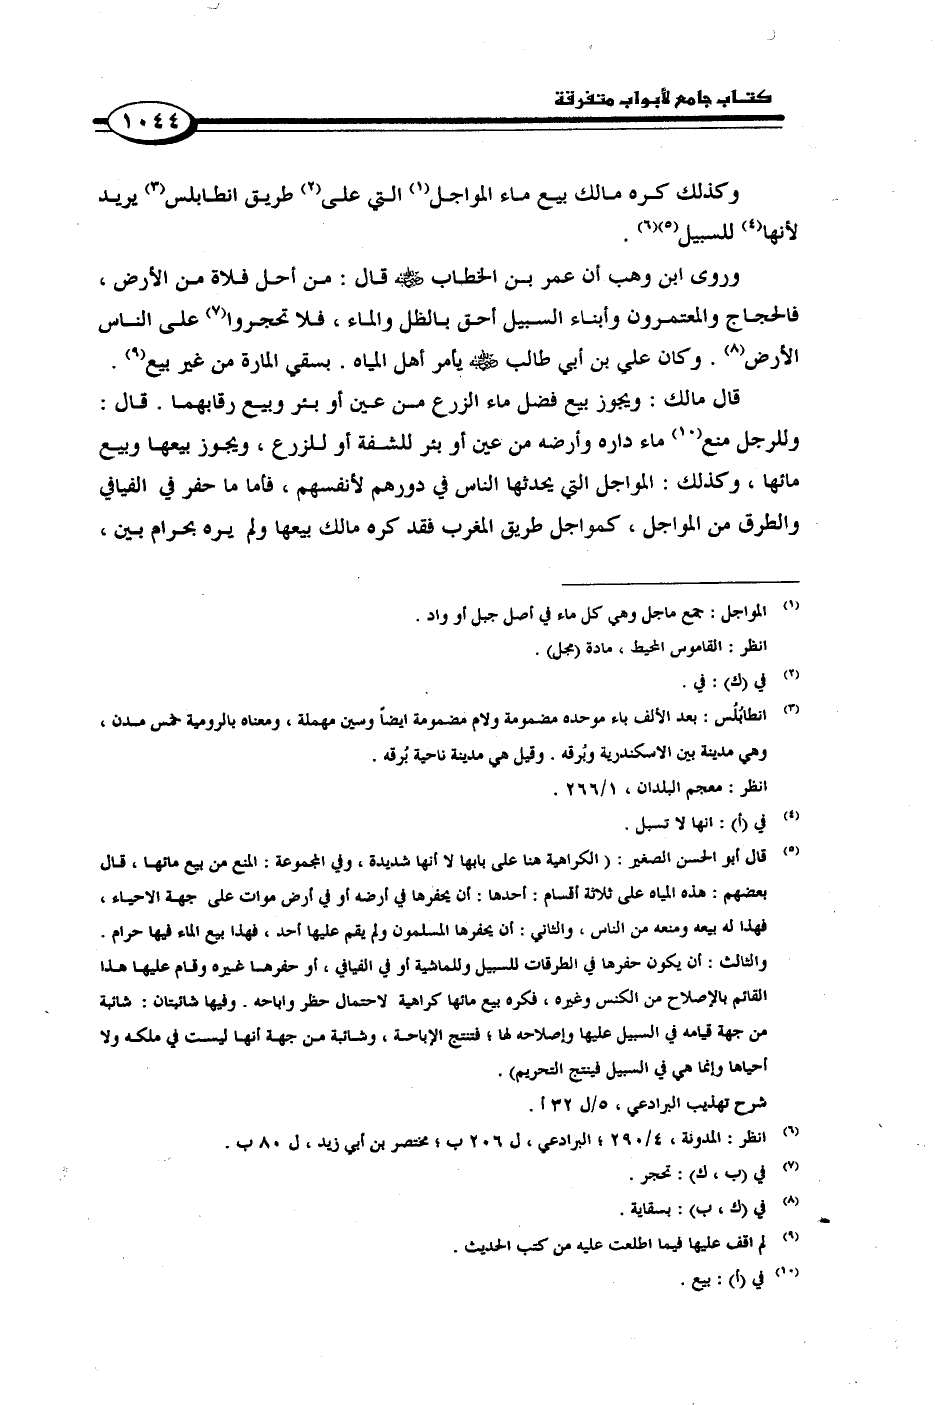 كتاب جامع لأبواب متفرقة
١٠٤٤
وكذلك كره مالك بيع ماء المواجل(١) التي على(٢) طريق انطابلس(٣) يريد
لأنها(٤) للسبيل(٥)(٦) .
وروى ابن وهب أن عمر بن الخطاب ﷺ قال : من أحل فلاة من الأرض ،
فالحجاج والمعتمرون وأبناء السبيل أحق بالظل والماء ، فلا تحجروا(٧) على الناس
الأرض(٨) . وكان علي بن أبي طالب ﷺ يأمر أهل المياه . بسقي المارة من غير بيع(٩) .
قال مالك : ويجوز بيع فضل ماء الزرع من عين أو بئر وبيع رقابهما . قال :
وللرجل منع(١٠) ماء داره وأرضه من عين أو بئر للشفة أو للزرع ، ويجوز بيعها وبيع
مائها ، وكذلك : المواجل التي يحدثها الناس في دورهم لأنفسهم ، فأما ما حفر في الفيافي
والطرق من المواجل ، كمواجل طريق المغرب فقد كره مالك بيعها ولم يره بحرام بين ،
(١) المواجل : جمع ماجل وهي كل ماء في أصل جبل أو واد .
انظر : القاموس المحيط ، مادة (مجل) .
(٢) في (ك) : في .
(٣) انطابُلُس : بعد الألف باء موحده مضمومة ولام مضمومة ايضاً وسين مهملة ، ومعناه بالرومية خمس مدن ،
وهي مدينة بين الاسكندرية وبُرقه . وقيل هي مدينة ناحية بُرقه .
انظر : معجم البلدان ، ٢٦٦/١ .
(٤) في (أ) : انها لا تسبل .
(٥) قال أبو الحسن الصغير : ( الكراهية هنا على بابها لا أنها شديدة ، وفي المجموعة : المنع من بيع مائها ، قال
بعضهم : هذه المياه على ثلاثة أقسام : أحدها : أن يحفرها في أرضه أو في أرض موات على جهة الاحياء ،
فهذا له بيعه ومنعه من الناس ، والثاني : أن يحفرها المسلمون ولم يقم عليها أحد ، فهذا بيع الماء فيها حرام .
والثالث : أن يكون حفرها في الطرقات للسبيل وللماشية أو في الفيافي ، أو حفرها غيره وقام عليها هذا
القائم بالإصلاح من الكنس وغيره ، فكره بيع مائها كراهية لاحتمال حظر واباحه . وفيها شائبتان : شائبة
من جهة قيامه في السبيل عليها وإصلاحه لها ؛ فتنتج الإباحة ، وشائبة من جهة أنها ليست في ملكه ولا
أحياها وإنما هي في السبيل فينتج التحريم) .
شرح تهذيب البرادعي ، ٥/ل ٣٢ أ .
(٦) انظر : المدونة ، ٢٩٠/٤ ؛ البرادعي ، ل ٢٠٦ ب ؛ مختصر بن أبي زيد ، ل ٨٠ ب .
(٧) في (ب ، ك) : تحجر .
(٨) في (ك ، ب) : بسقاية .
(٩) لم اقف عليها فيما اطلعت عليه من كتب الحديث .
(١٠) في (أ) : بيع .